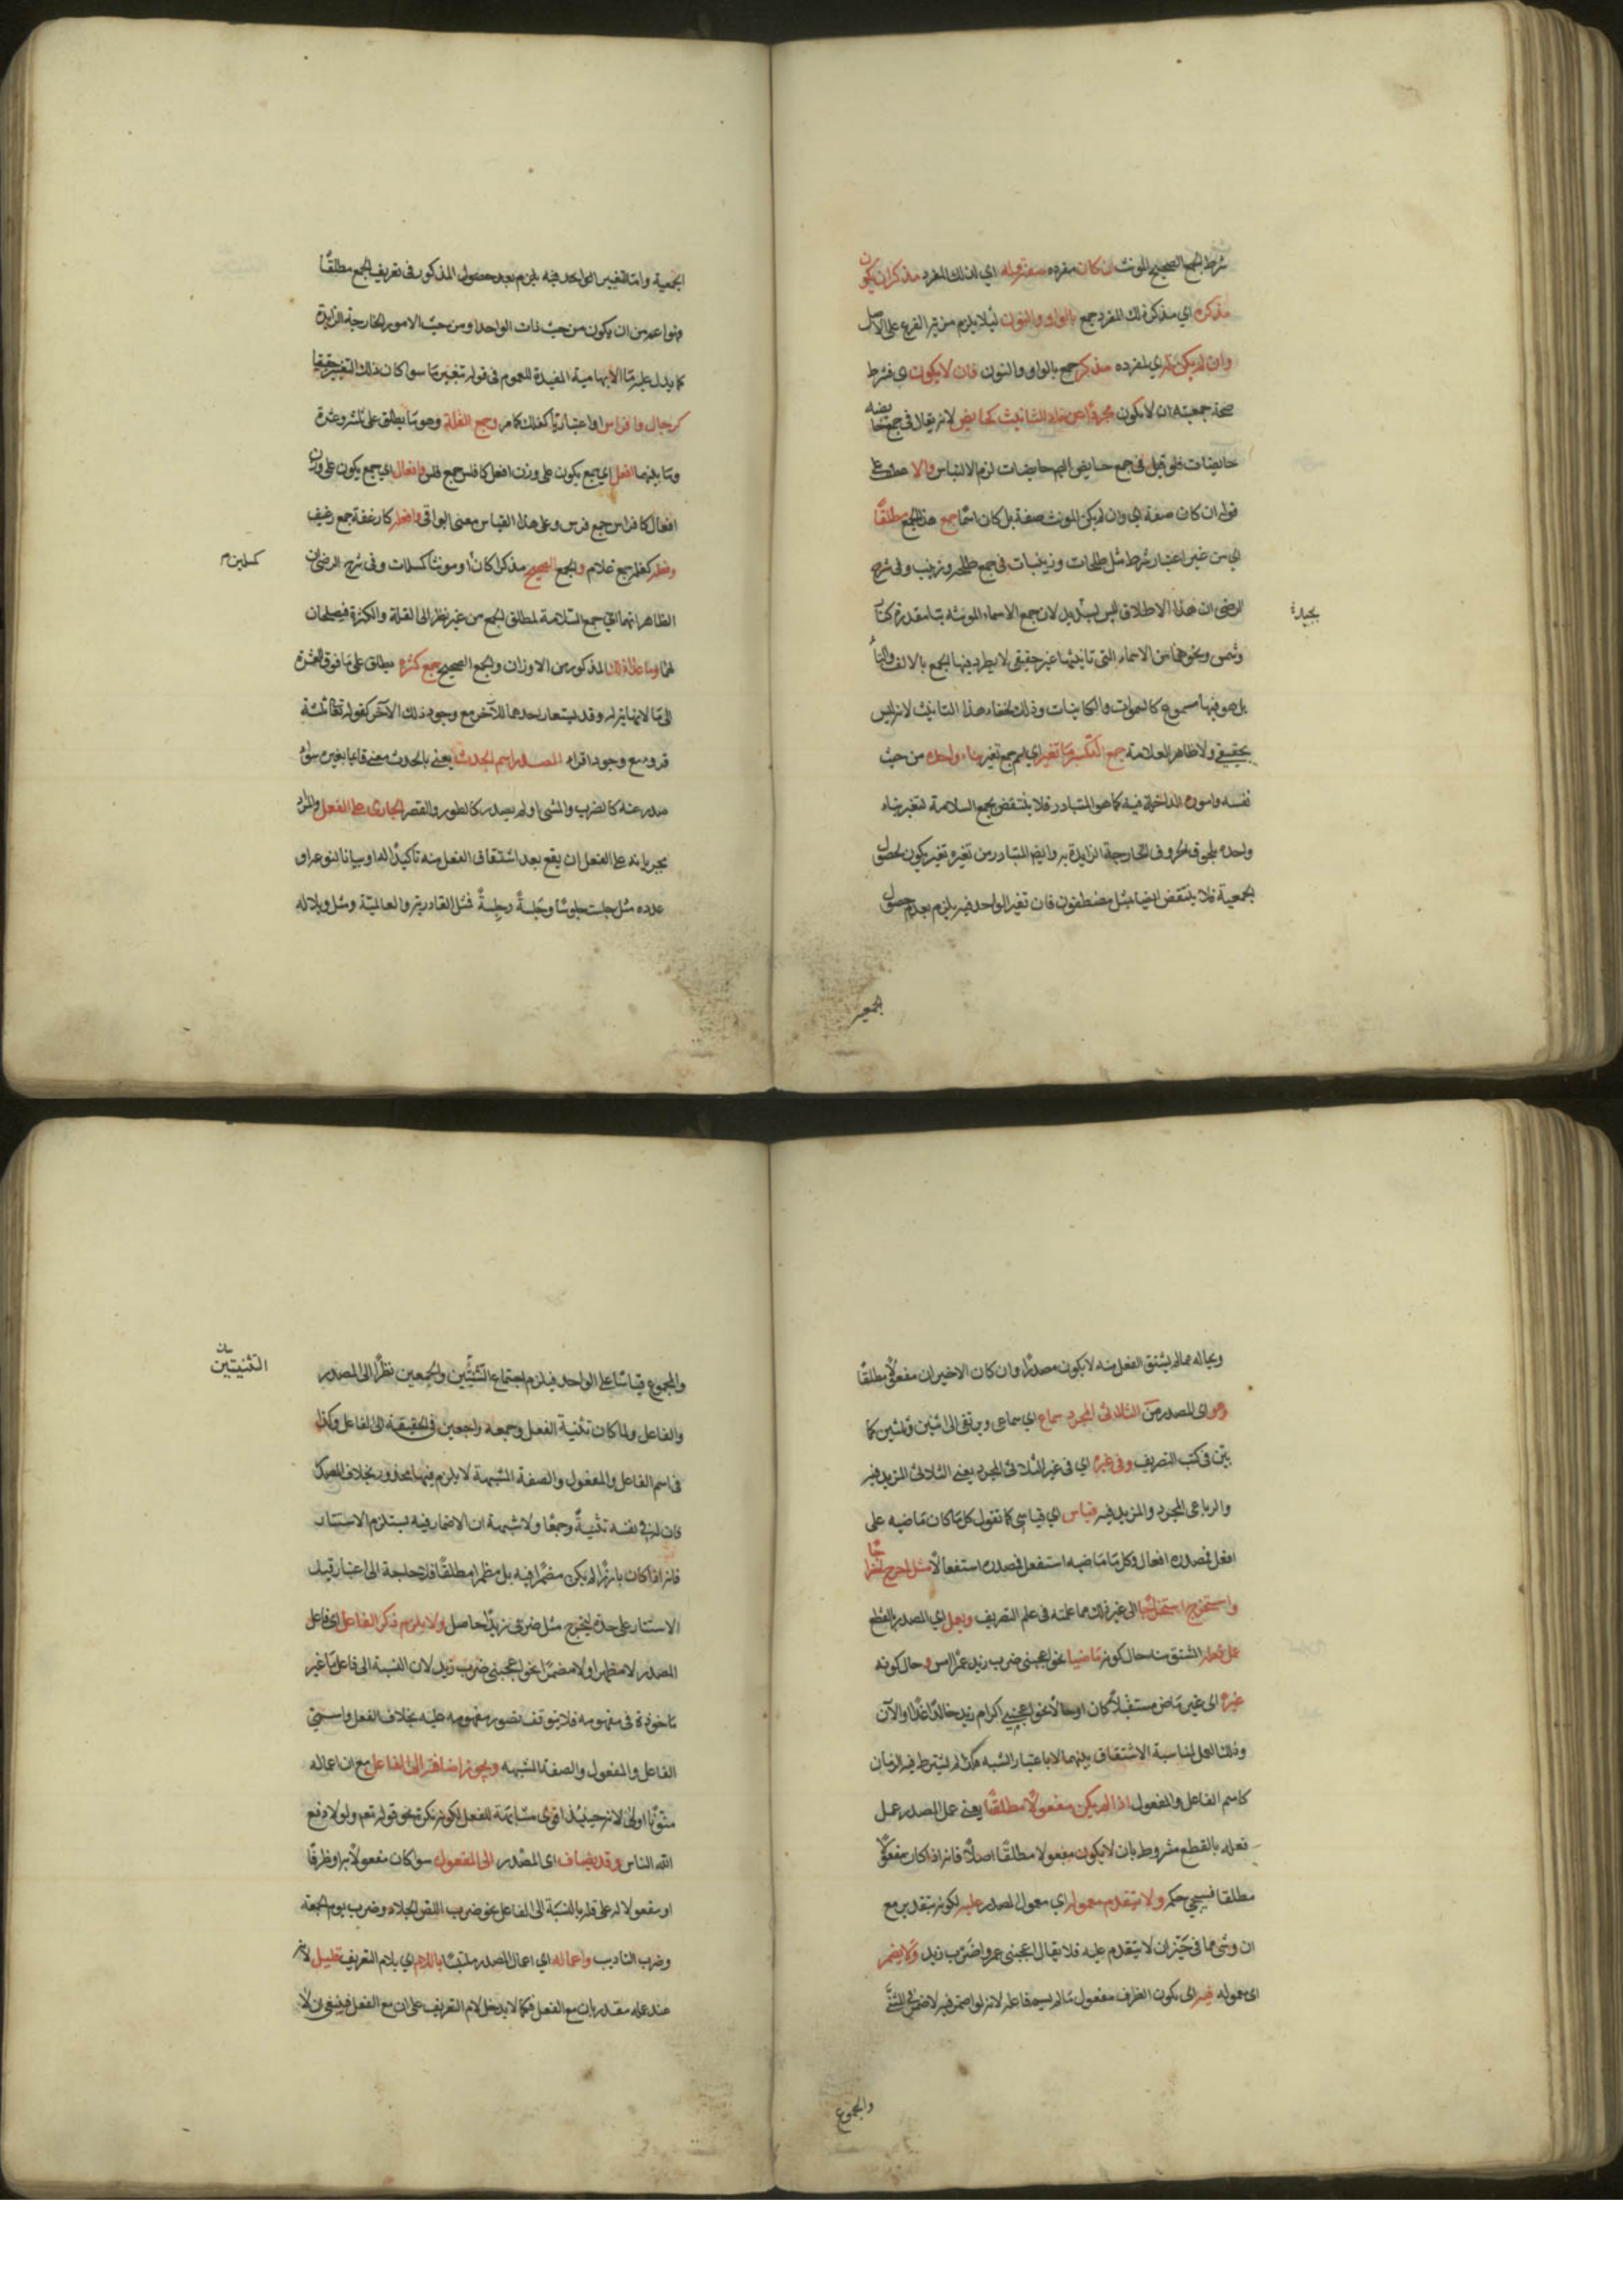 شرط الجمع الصحيح المونث ان كان مفرده صفة وله اى لذلك المفرد مذكر ان يكون
مذكره اي مذكر ذلك المفرد جمع بالواو والنون ليلا يلزم مزية الفرع على الاصل
وان لم يكن له اي لمفرده مذكر جمع بالواو والنون فان لا يكون اي فشرط
صحة جمعيته ان لا يكون مجردًا عن تاء التانيث كحايض لانه يقال في جمع حايضة
حايضات فلو قيل في جمع حايض ايضا حايضات لزم الالتباس والا عطف على
قوله ان كان صفة اي وان لم يكن المونث صفة بل كان اسمًا جمع هذا الجمع مطلقًا
اي من غير اعتبار شرط مثل طلحات وزينبات في جمع طلحة وزينب وفي شرح
الرضى ان هذا الاطلاق ليس بسديد لان جمع الاسماء المونثة بتا مقدرة كنار
بجيدة
وشمس ونحوهما من الاسماء التي تانيثها غير حقيقي لا يطرد فيها الجمع بالالف والتاء
بل هو فيها مسموع كالسموات والكاينات وذلك لخفاء هذا التانيث لانه ليس
بحقيقي ولا ظاهر العلامة جمع التكسير ما تغير اي جمع تغير بناء واحده من حيث
نفسه واموره الداخلة فيه كما هو المتبادر فلا ينتقض بجمع السلامة لتغير بناء
واحده بلحوق الحروف الخارجة الزايدة به وايضا المتبادر من تغيره تغير يكون لحصول
الجمعية فلا ينتقض ايضا بمثل مصطفون فان تغير الواحد فيه يلزم بعد حصول
الجمعية
الجمعية واما التغيير الواحد فيه يلزم بعد حصول المذكور في تعريف الجمع مطلقًا
وهو اعم من ان يكون من حيث ذات الواحد او من حيث الامور الخارجة الزايدة
كما يدل عليه ما الابهامية المفيدة للعموم في قوله تغيير ما سوا كان ذلك التغيير حقيقيا
كرجال وافراس او اعتباريًا كفلك كما مر وجمع القلة وهو ما يطلق على ثلثة وعشرة
وما بينهما افعل اي جمع يكون على وزن افعل كافلس جمع فلس وافعال اي جمع يكون على وزن
افعال كافراس جمع فرس وعلى هذا القياس معنى البواقى وافعلة كارغفة جمع رغيف
وفعلة كغلمة جمع غلام والجمع الصحيح مذكرا كان او مونثا كمسلمات وفي شرح الرضى ان
كمسلمين م
الظاهر انهما اي جمع السلامة لمطلق الجمع من غير نظر الى القلة والكثرة فيصلحان
لهما وما عدا ذلك المذكور من الاوزان والجمع الصحيح جمع كثرة يطلق على ما فوق العشرة
الى ما لا نهاية له وقد يستعار احدهما للآخر مع وجود ذلك الآخر كقوله تعالى ثلثة
قروء مع وجود اقراء المصدر اسم الحدث يعنى بالحدث معنى قايما بغيره سواء
صدر عنه كالضرب والمشى او لم يصدر كالطول والقصر الجارى على الفعل والمراد
بجريانه على الفعل ان يقع بعد اشتقاق الفعل منه تاكيدًا له او بيانا لنوعه او
عدده مثل جلست جلوسًا وجَلسةً وجِلسةً فمثل القادرية والعالمية ومثل ويلا له
وويحا له مما لم يشتق الفعل منه لا يكون مصدرًا وان كان الاخيران مفعولًا مطلقًا
وهو اى المصدر من الثلاثى المجرد سماع اي سماعى ويرتقى الى اثنين وثلثين كما
بيّن فى كتب التصريف وفى غيره اي فى غير الثلاثى المجرد يعنى الثلاثى المزيد فيه
والرباعى المجرد والمزيد فيه قياس اي قياسى كما تقول كل ما كان ماضيه على
افعل فمصدره افعال وكل ما ماضيه استفعل فمصدره استفعالًا مثل اخرج اخراجًا
واستخرج استخراجًا الى غير ذلك مما علمته فى علم التصريف ويعمل اي المصدر بالقطع
عمل فعله المشتق منه حال كونه ماضيا نحو اعجبنى ضرب زيد عمرًا امس وحال كونه
غيره اى غير ماض مستقبلًا كان او حالًا نحو اعجبنى اكرام زيد خالدًا غدًا او الآن
وذلك العمل لمناسبة الاشتقاق بينهما لا باعتبار الشبه فلذا لم يشترط فيه الزمان
كاسم الفاعل والمفعول اذا لم يكن مفعولًا مطلقًا يعنى عمل المصدر عمل
فعله بالقطع مشروط بان لا يكون مفعولا مطلقًا اصلًا فانه اذا كان مفعولًا
مطلقا فسيجئ حكمه ولا يتقدم معموله اي معمول المصدر عليه لكونه بتقدير مع
ان وشئ مما فى حيّز ان لا يتقدم عليه فلا يقال اعجبنى عمروا ضرب زيد ولا يضمر
اى معموله فيه اى يكون الظرف مفعول ما لم يسم فاعله لانه لو اضمر فيه لاضمر فى المثنى
والمجموع
والمجموع قياسًا على الواحد فيلزم اجتماع التثنيتين والجمعين نظرًا الى المصدر
التثنيتين
والفاعل ولما كان تثنية الفعل وجمعه راجعين فى الحقيقة الى الفاعل وكذا
فى اسم الفاعل والمفعول والصفة المشبهة لا يلزم فيها محذور بخلاف المصدر
فان له فى نفسه تثنيةً وجمعًا ولا شبهة ان الاضمار فيه يستلزم الاستتار
فانه اذا كان بارزًا لم يكن مضمرًا فيه بل مظهرا مطلقًا فلا حاجة الى اعتبار قيد
الاستتار على حدة ليخرج مثل ضربى زيدًا حاصل ولا يلزم ذكر الفاعل اى فاعل
المصدر لا مظهرا ولا مضمرًا نحو اعجبنى ضرب زيد لان النسبة الى فاعل ما غير
ماخوذة فى مفهومه فلا يتوقف تصور مفهومه عليه بخلاف الفعل واسمى
الفاعل والمفعول والصفة المشبهة ويجوز اضافته الى الفاعل مع ان اعماله
منونًا اولى لانه حينئذ اقوى مشابهة للفعل لكونه نكرة نحو قوله تعم ولولا دفع
الله الناس وقد يضاف اى المصدر الى المفعول سوا كان مفعولًا به او ظرفًا
او مفعولا له على قلة بالنسبة الى الفاعل نحو ضرب اللص الجلاد وضرب يوم الجمعة
وضرب التاديب واعماله اي اعمال المصدر ملتبسًا باللام اي بلام التعريف قليل لانه
عند عمله مقدر بان مع الفعل فكما لا يدخل لام التعريف على ان مع الفعل فينبغى ان لا